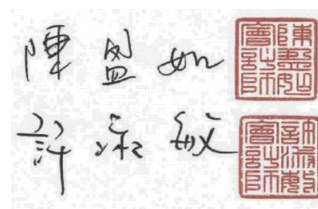 陳盈如
陳盈如會計師
許淑敏
許淑敏會計師